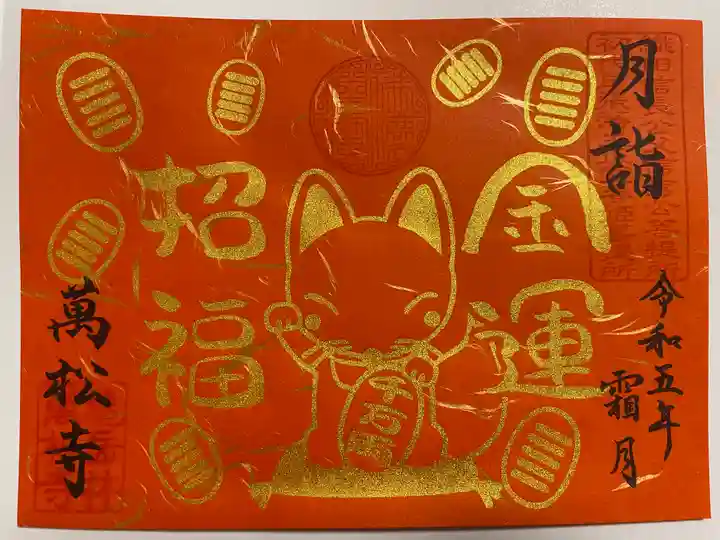 月詣
令和五年
霜月
金運
招福
千万両
萬松寺